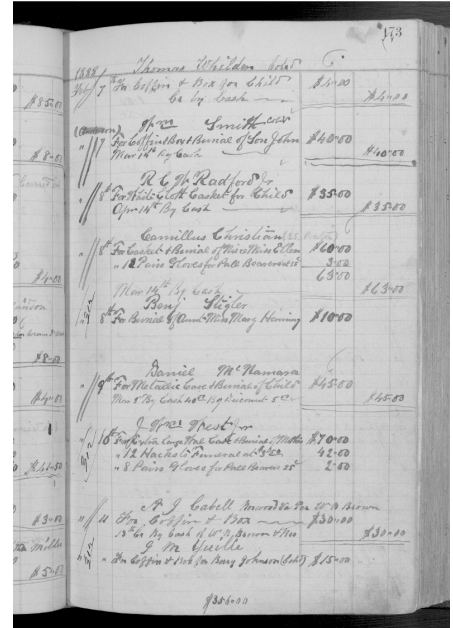 173
1888 Thomas Whilden Cold
Feby 7th For Coffin & Box for Child $4.00
Cr by Cash $4.00
Wm Smith Cold
" 7 For Coffin Box & Burial of Son John $40.00
Mar 14th By Cash $40.00
R C W Radford Jr
" 8th For White Cloth Casket for Child $35.00
Apr 14th By Cash $35.00
Camillus Christian
" 8th For Casket & Burial of Niece Miss Ellen $60.00
" 12 Pairs Gloves for Pall Bearers at 25c 3.00
63.00
Mar 14th By Cash $63.00
Benj Stigler
8th For Burial of Aunt Miss Mary Henning $10.00
Daniel McNamara
" 9th For Metallic Case & Burial of Child $45.00
Mar 8 By Cash 40.00 By Discount 5.00 $45.00
J Wm West Jr
" 10th For Case & Burial of Mother $70.00
" 12 Hacks to Funeral at 3.50 42.00
" 8 Pairs Gloves for Pall Bearers 25c 2.00
A J Cabell Per W A Brown
" 11 For Coffin & Box $30.00
Cr By Cash of W A Brown $30.00
J M Yuille
" " For Coffin & Box for Johnson (Cold) $15.00
$356.00
$85.00
$8.00
$4.00
$8.00
$4.00
$41.50
$3.00
Miller
$5.00